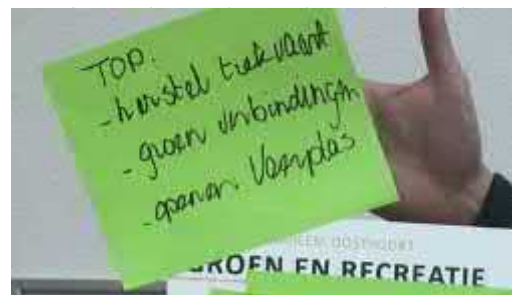 TOP.
- herstel trekvaart
- groen verbindingen
- openen Veerplas
GROEN EN RECREATIE